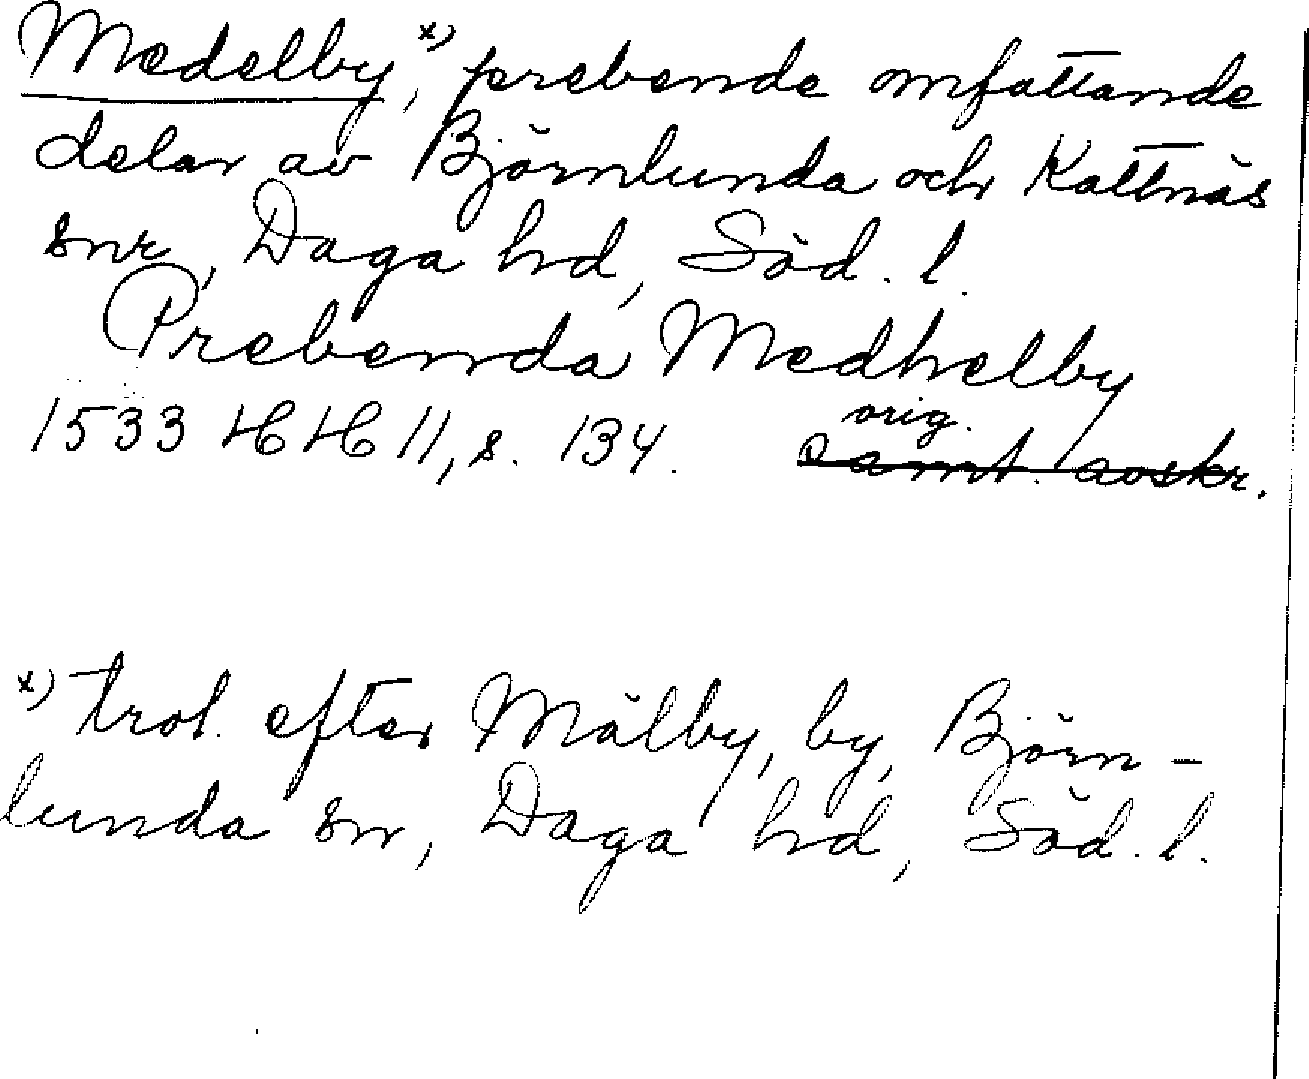 Medelby,x) prebende omfattande
delar av Björnlunda och Kattnäs
snr, Daga hd, Söd. l.
Prebenda Medhelby
orig.
1533 HH 11, s. 134. samt. avskr.
x) trol. efter Mälby, by, Björn-
lunda sn, Daga hd, Söd. l.